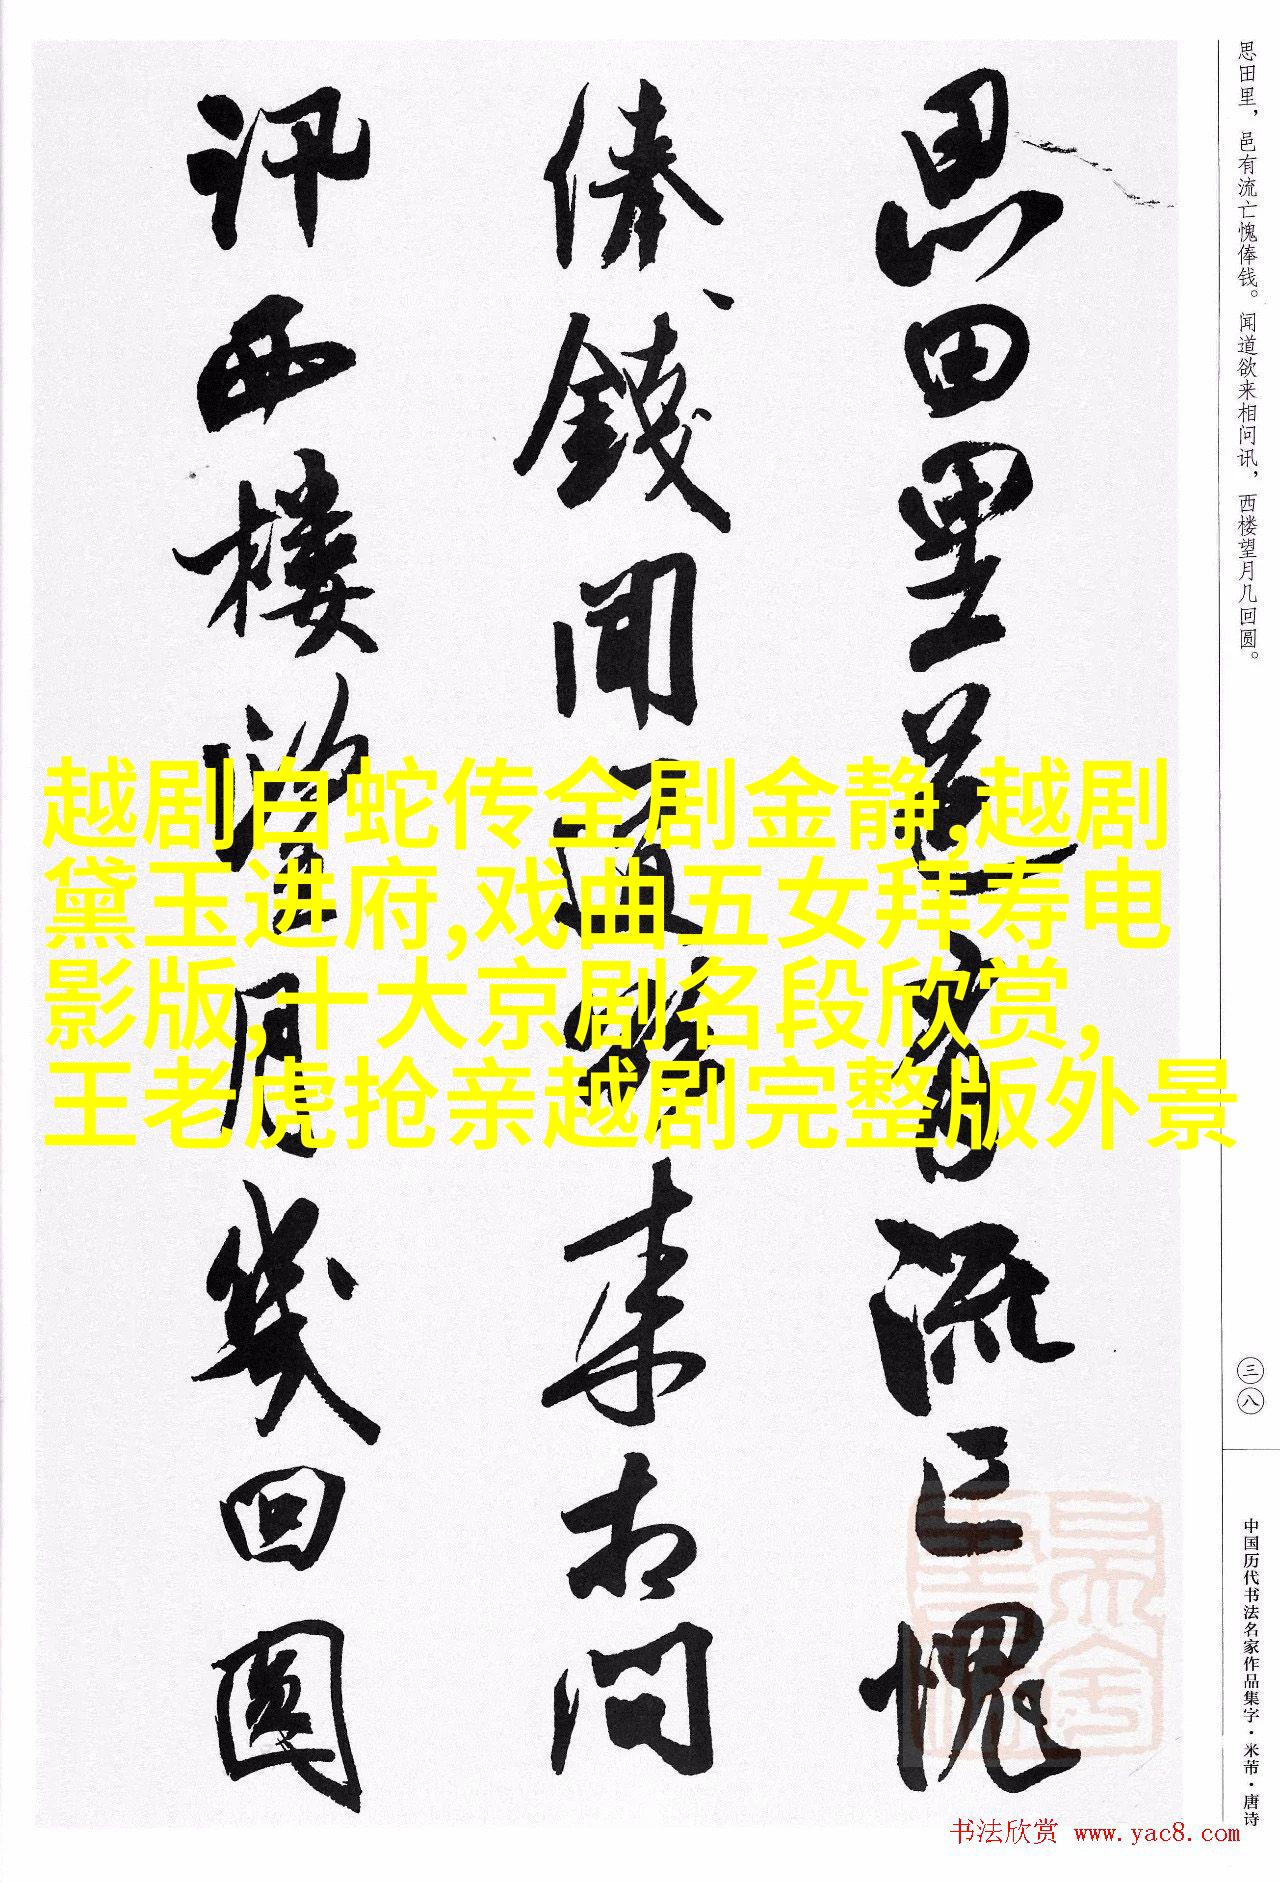 思田里邑有流亡愧
俸錢聞道欲来相問
訊西樓望月幾回圓
思田里，邑有流亡愧俸钱。闻道欲来相问讯，西楼望月几回圆。
三八
中国历代书法名家作品集字·米芾·唐诗
越剧白蛇传全剧金静,越剧
黛玉进府,戏曲五女拜寿电
影版,十大京剧名段欣赏,
王老虎抢亲越剧完整版外景
书法欣赏 www.yac8.com